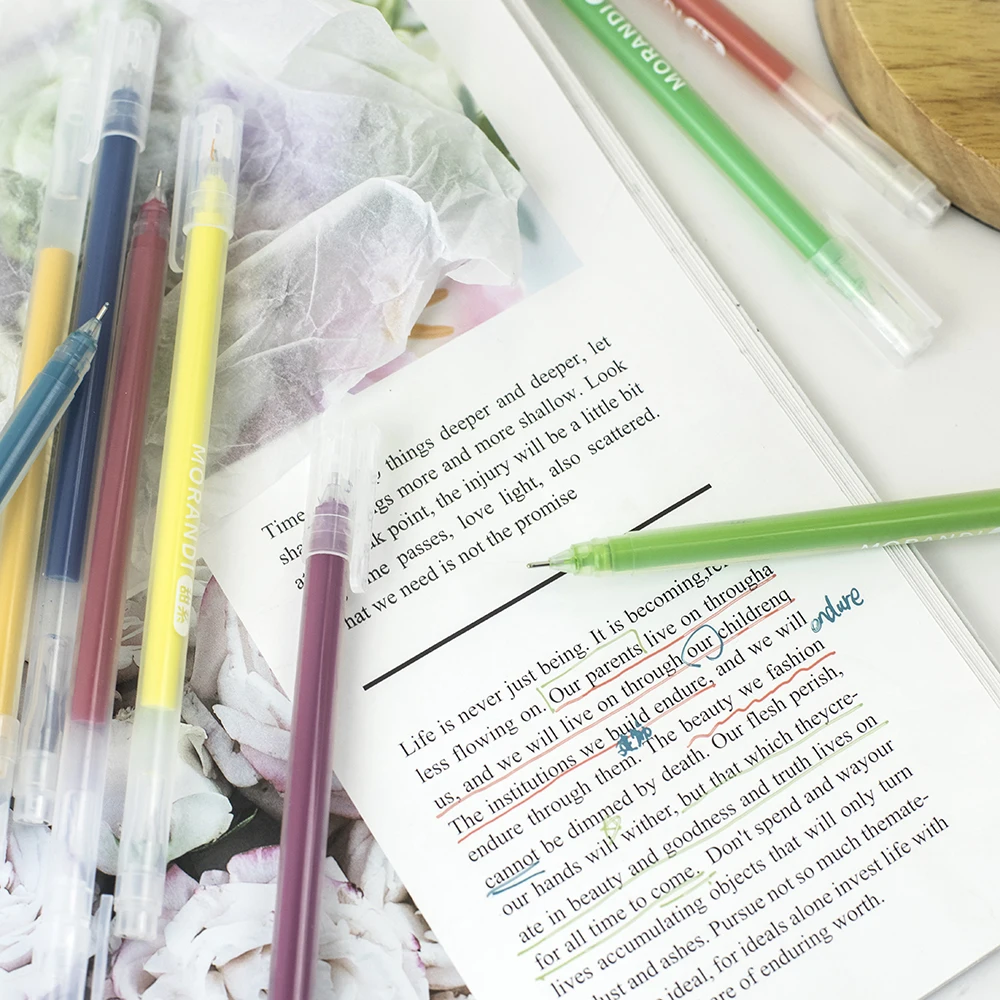 MORANDI
MORANDI
things deeper and deeper, let
Time things more and more shallow. Look
point, the injury will be a little bit
passes, love light, also scattered.
we need is not the promise
Life is never just being. It is becoming,
less flowing on. Our parents live on througha
us, and we will live on through our childrenq
The institutions we build endure, and we will
endure
endure through them. The beauty we fashion
cannot be dimmed by death. Our flesh perish,
our hands will wither, but that which theycre-
ate in beauty and goodness and truth lives on
for all time to come. Don't spend and wayour
lives accumulating objects that will only turn
dust and ashes. Pursue not so much themate-
ideal, for ideals alone invest life with
of enduring worth.
MORANDI